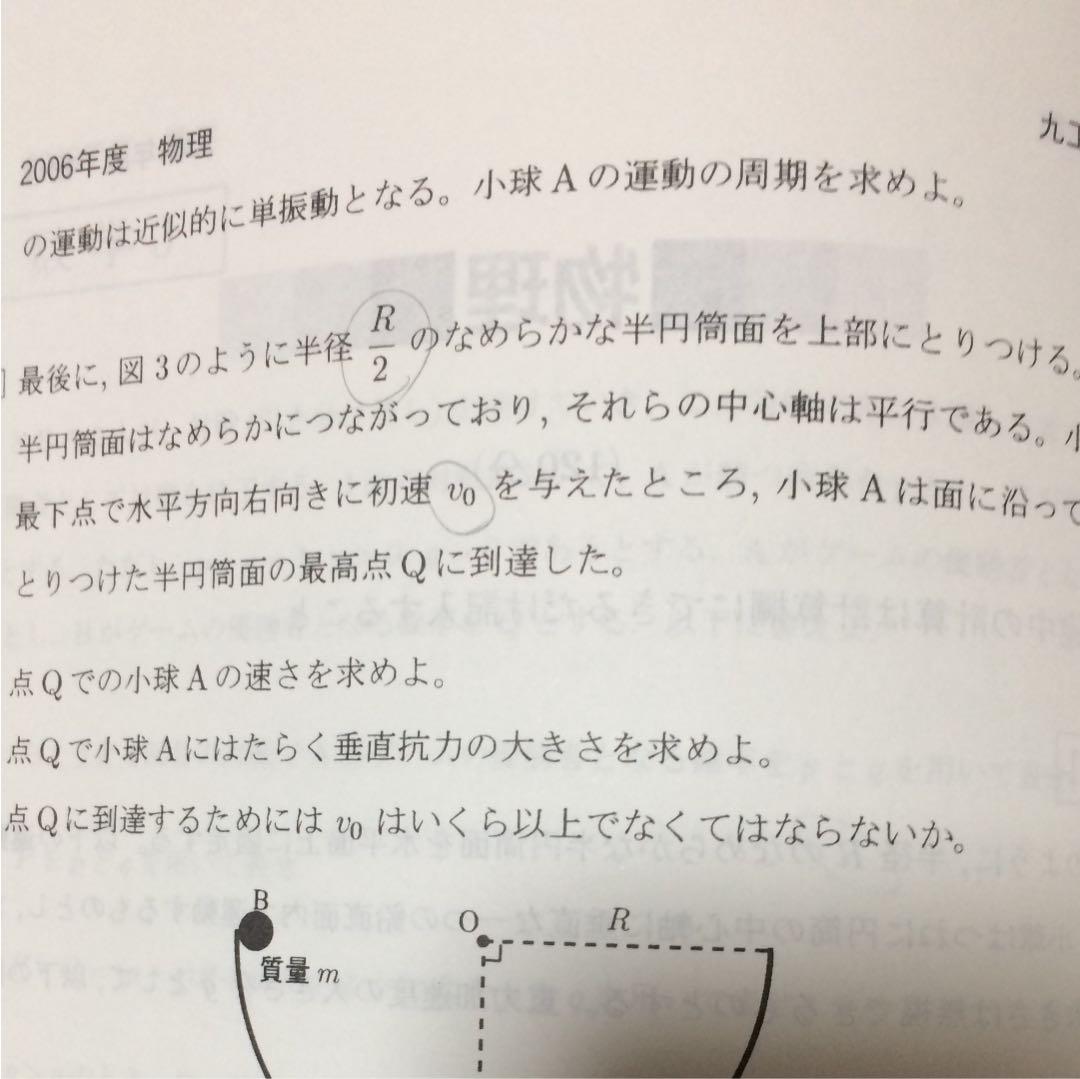 2006年度 物理
九工
の運動は近似的に単振動となる。小球Aの運動の周期を求めよ。
最後に, 図3のように半径 R/2 のなめらかな半円筒面を上部にとりつける。
半円筒面はなめらかにつながっており, それらの中心軸は平行である。小
最下点で水平方向右向きに初速 v₀ を与えたところ, 小球Aは面に沿って
とりつけた半円筒面の最高点Qに到達した。
点Qでの小球Aの速さを求めよ。
点Qで小球Aにはたらく垂直抗力の大きさを求めよ。
点Qに到達するためには v₀ はいくら以上でなくてはならないか。
B
O
R
質量 m